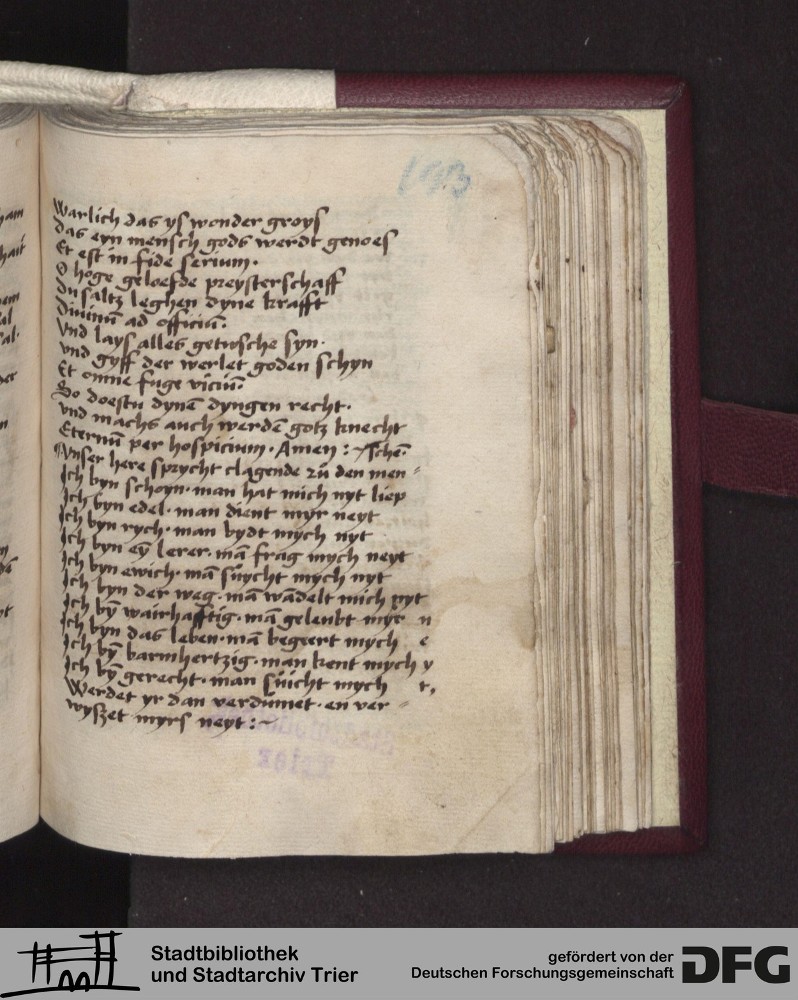 193
Warlich das ys wonder groys
das eyn mensch gods werdt genoes
Et est in fide serium.
O hoge geloefde preysterschaff
du saltz leghen dyne krafft
Diuinū ad officiū.
Vnd lays alles getusche syn.
vnd gyff der werlet goden schyn
Et omne fuge viciū.
So doestu dynē dyngen recht.
vnd machs auch werdē gotz knecht
Eternū per hospicium. Amen :
Vnser here sprycht clagende zů den men-
Ich byn schoyn. man hat mich nyt liep
Ich byn edel. man dient myr neyt
Ich byn rych. man bydt mych nyt
Ich byn eȳ lerer. mā frag mych neyt
Ich byn ewich. mā sůycht mych nyt
Ich byn der weg. mā wādelt mich nyt
Ich bȳ wairhafftig. mā geleubt myr n
Ich byn das leben. mā begeert mych e
Ich bȳ barmhertzig. man kent mych y
Ich bȳ gerecht. man sůicht mych t,
Werdet yr dan verdůmet. en ver-
wyszet myrs neyt :~
Trier
Stadtbibliothek
und Stadtarchiv Trier
gefördert von der
Deutschen Forschungsgemeinschaft
DFG